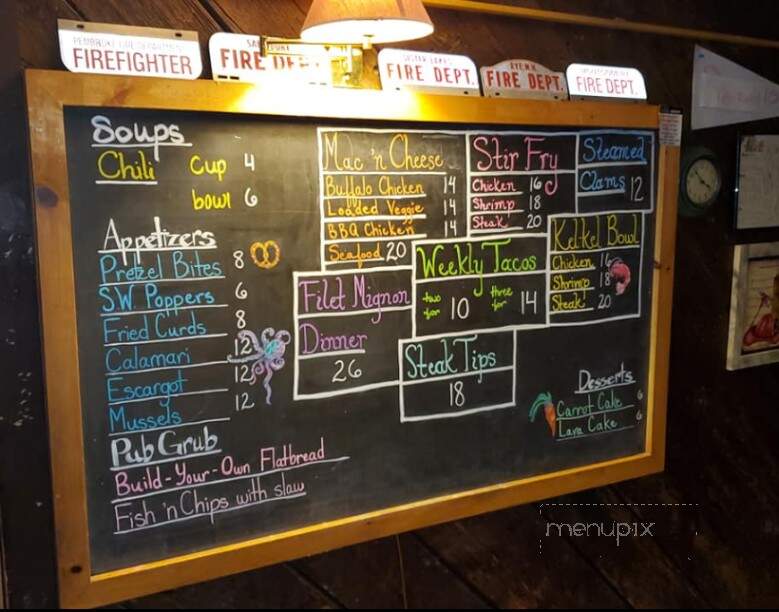 FIREFIGHTER
FIRE DEPT.
FIRE DEPT.
FIRE DEPT.
FIRE DEPT.
Soups
Chili Cup 4
bowl 6
Appetizers
Pretzel Bites 8
SW Poppers 6
Fried Curds 8
Calamari 12
Escargot 12
Mussels 12
Pub Grub
Build-Your-Own Flatbread
Fish 'n Chips with slaw
Mac 'n Cheese
Buffalo Chicken 14
Loaded Veggie 14
BBQ Chicken 14
Seafood 20
Stir Fry
Chicken 16
Shrimp 18
Steak 20
Steamed
Clams 12
Kel-Kel Bowl
Chicken 16
Shrimp 18
Steak 20
Weekly Tacos
two for 10 three for 14
Filet Mignon
Dinner
26
Steak Tips
18
Desserts
Carrot Cake 6
Lava Cake 6
menupix